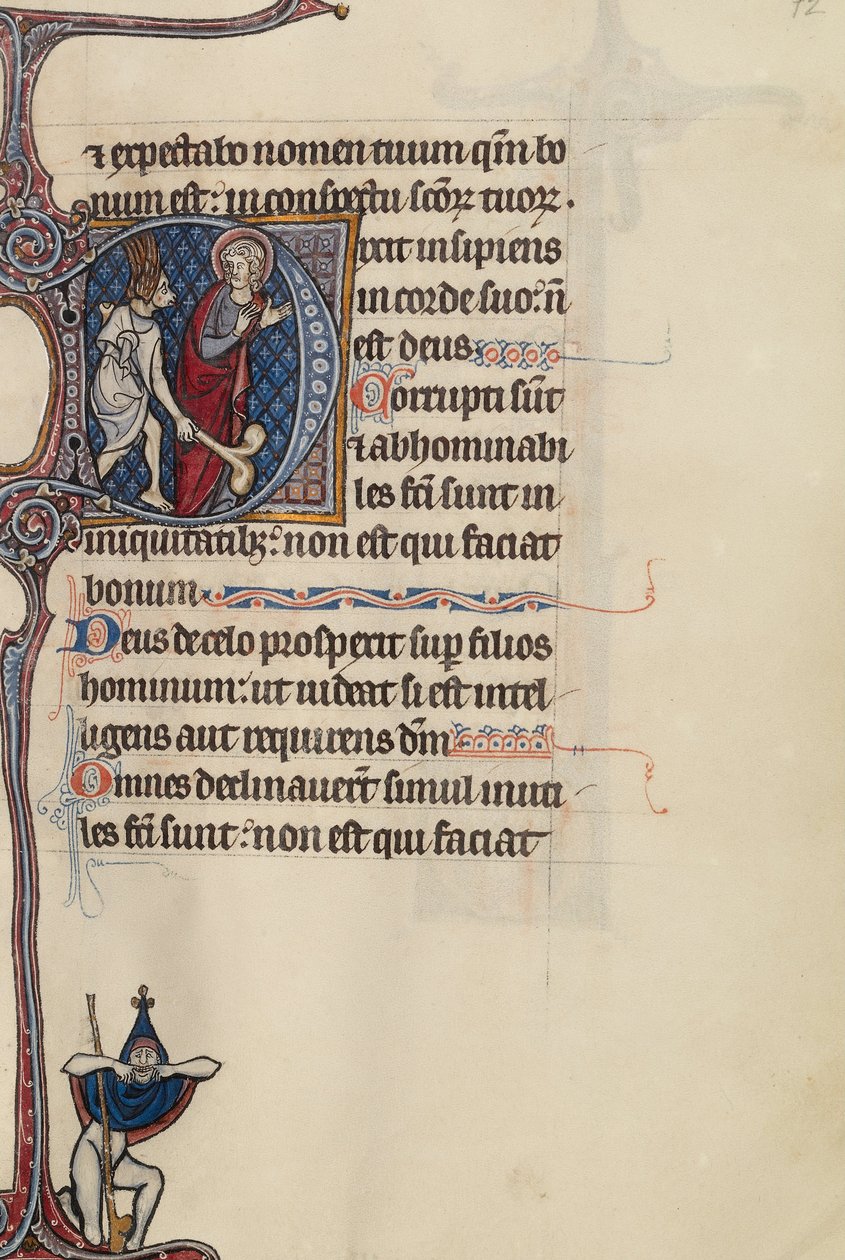 72
⁊ expectabo nomen tuum qm̄ bo
num est: in conspectu sc̄oꝝ tuoꝝ.
Dixit insipiens
in corde suo: n̄
est deus
Corrupti sūt
⁊ abhominabi
les fc̄i sunt in
iniquitatibꝫ: non est qui faciat
bonum
Deus de celo prospexit suꝑ filios
hominum: ut uideat si est intel
ligens aut requirens dm̄
Omnes declinauer̄t simul inuti
les fc̄i sunt: non est qui faciat